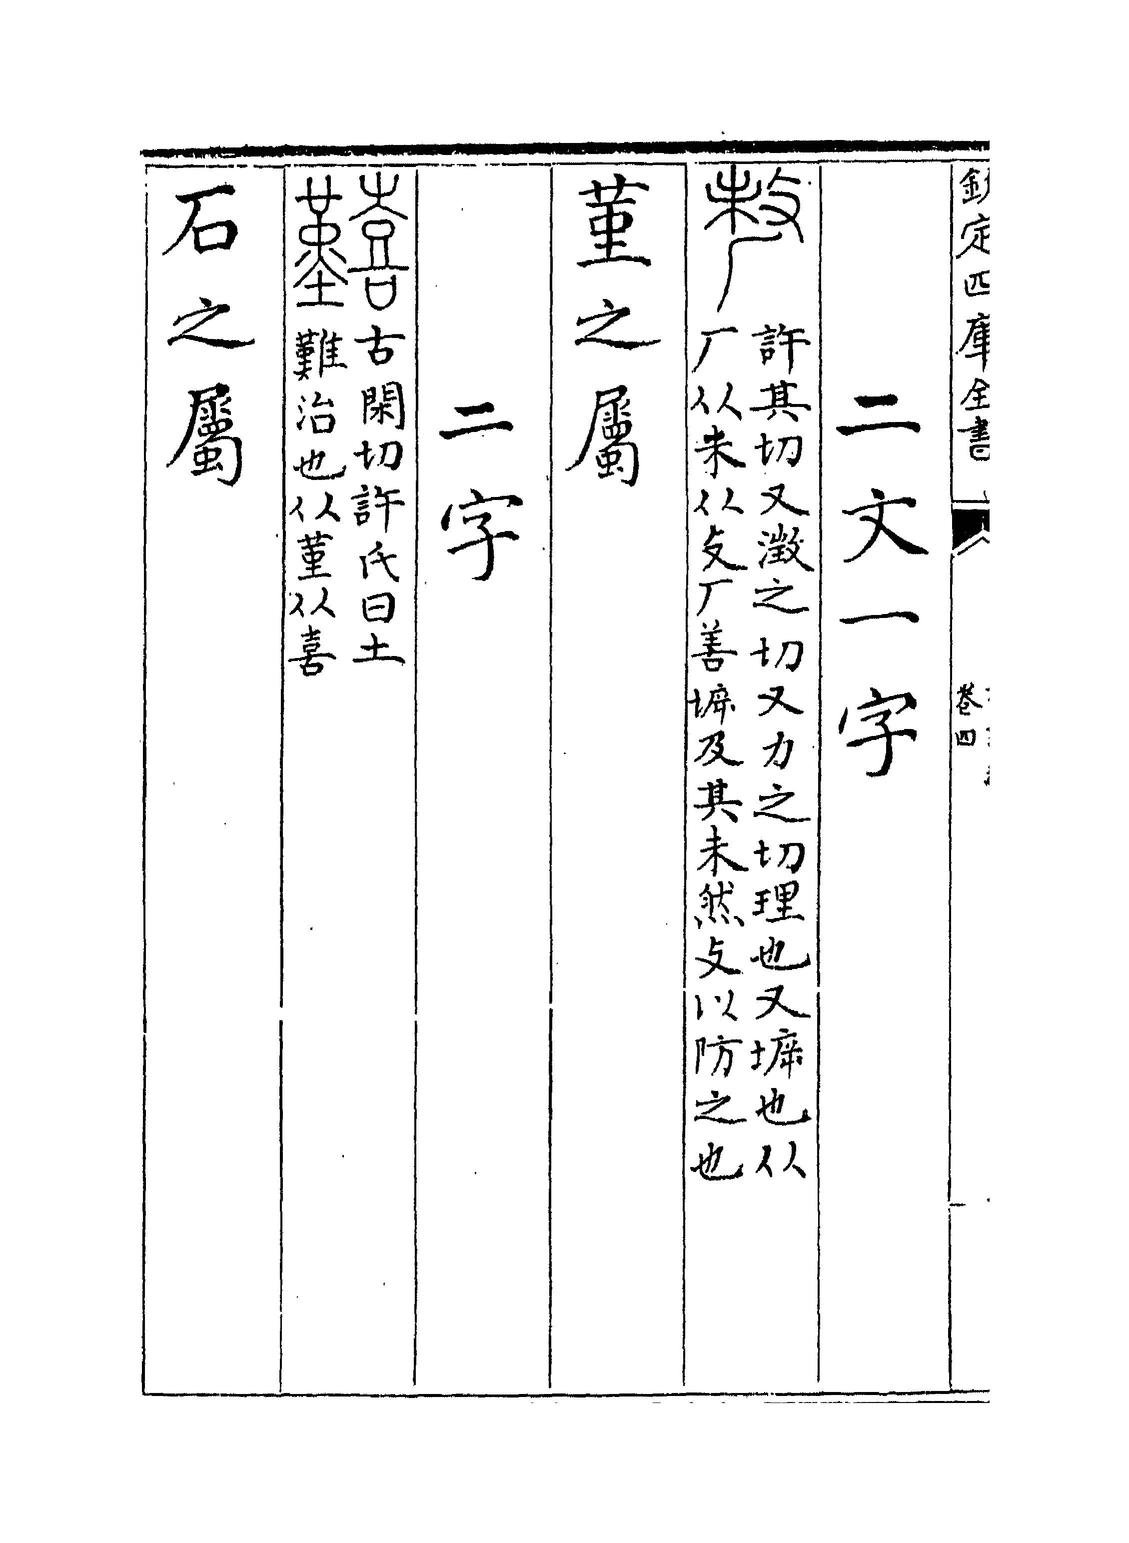 欽定四庫全書
卷四
二文一字
𠩺
許其切又澂之切又力之切理也又坼也从
厂从未从攴厂善坼及其未然攴以防之也
堇之屬
二字
囏
古閑切許氏曰土
難治也从堇从喜
石之屬